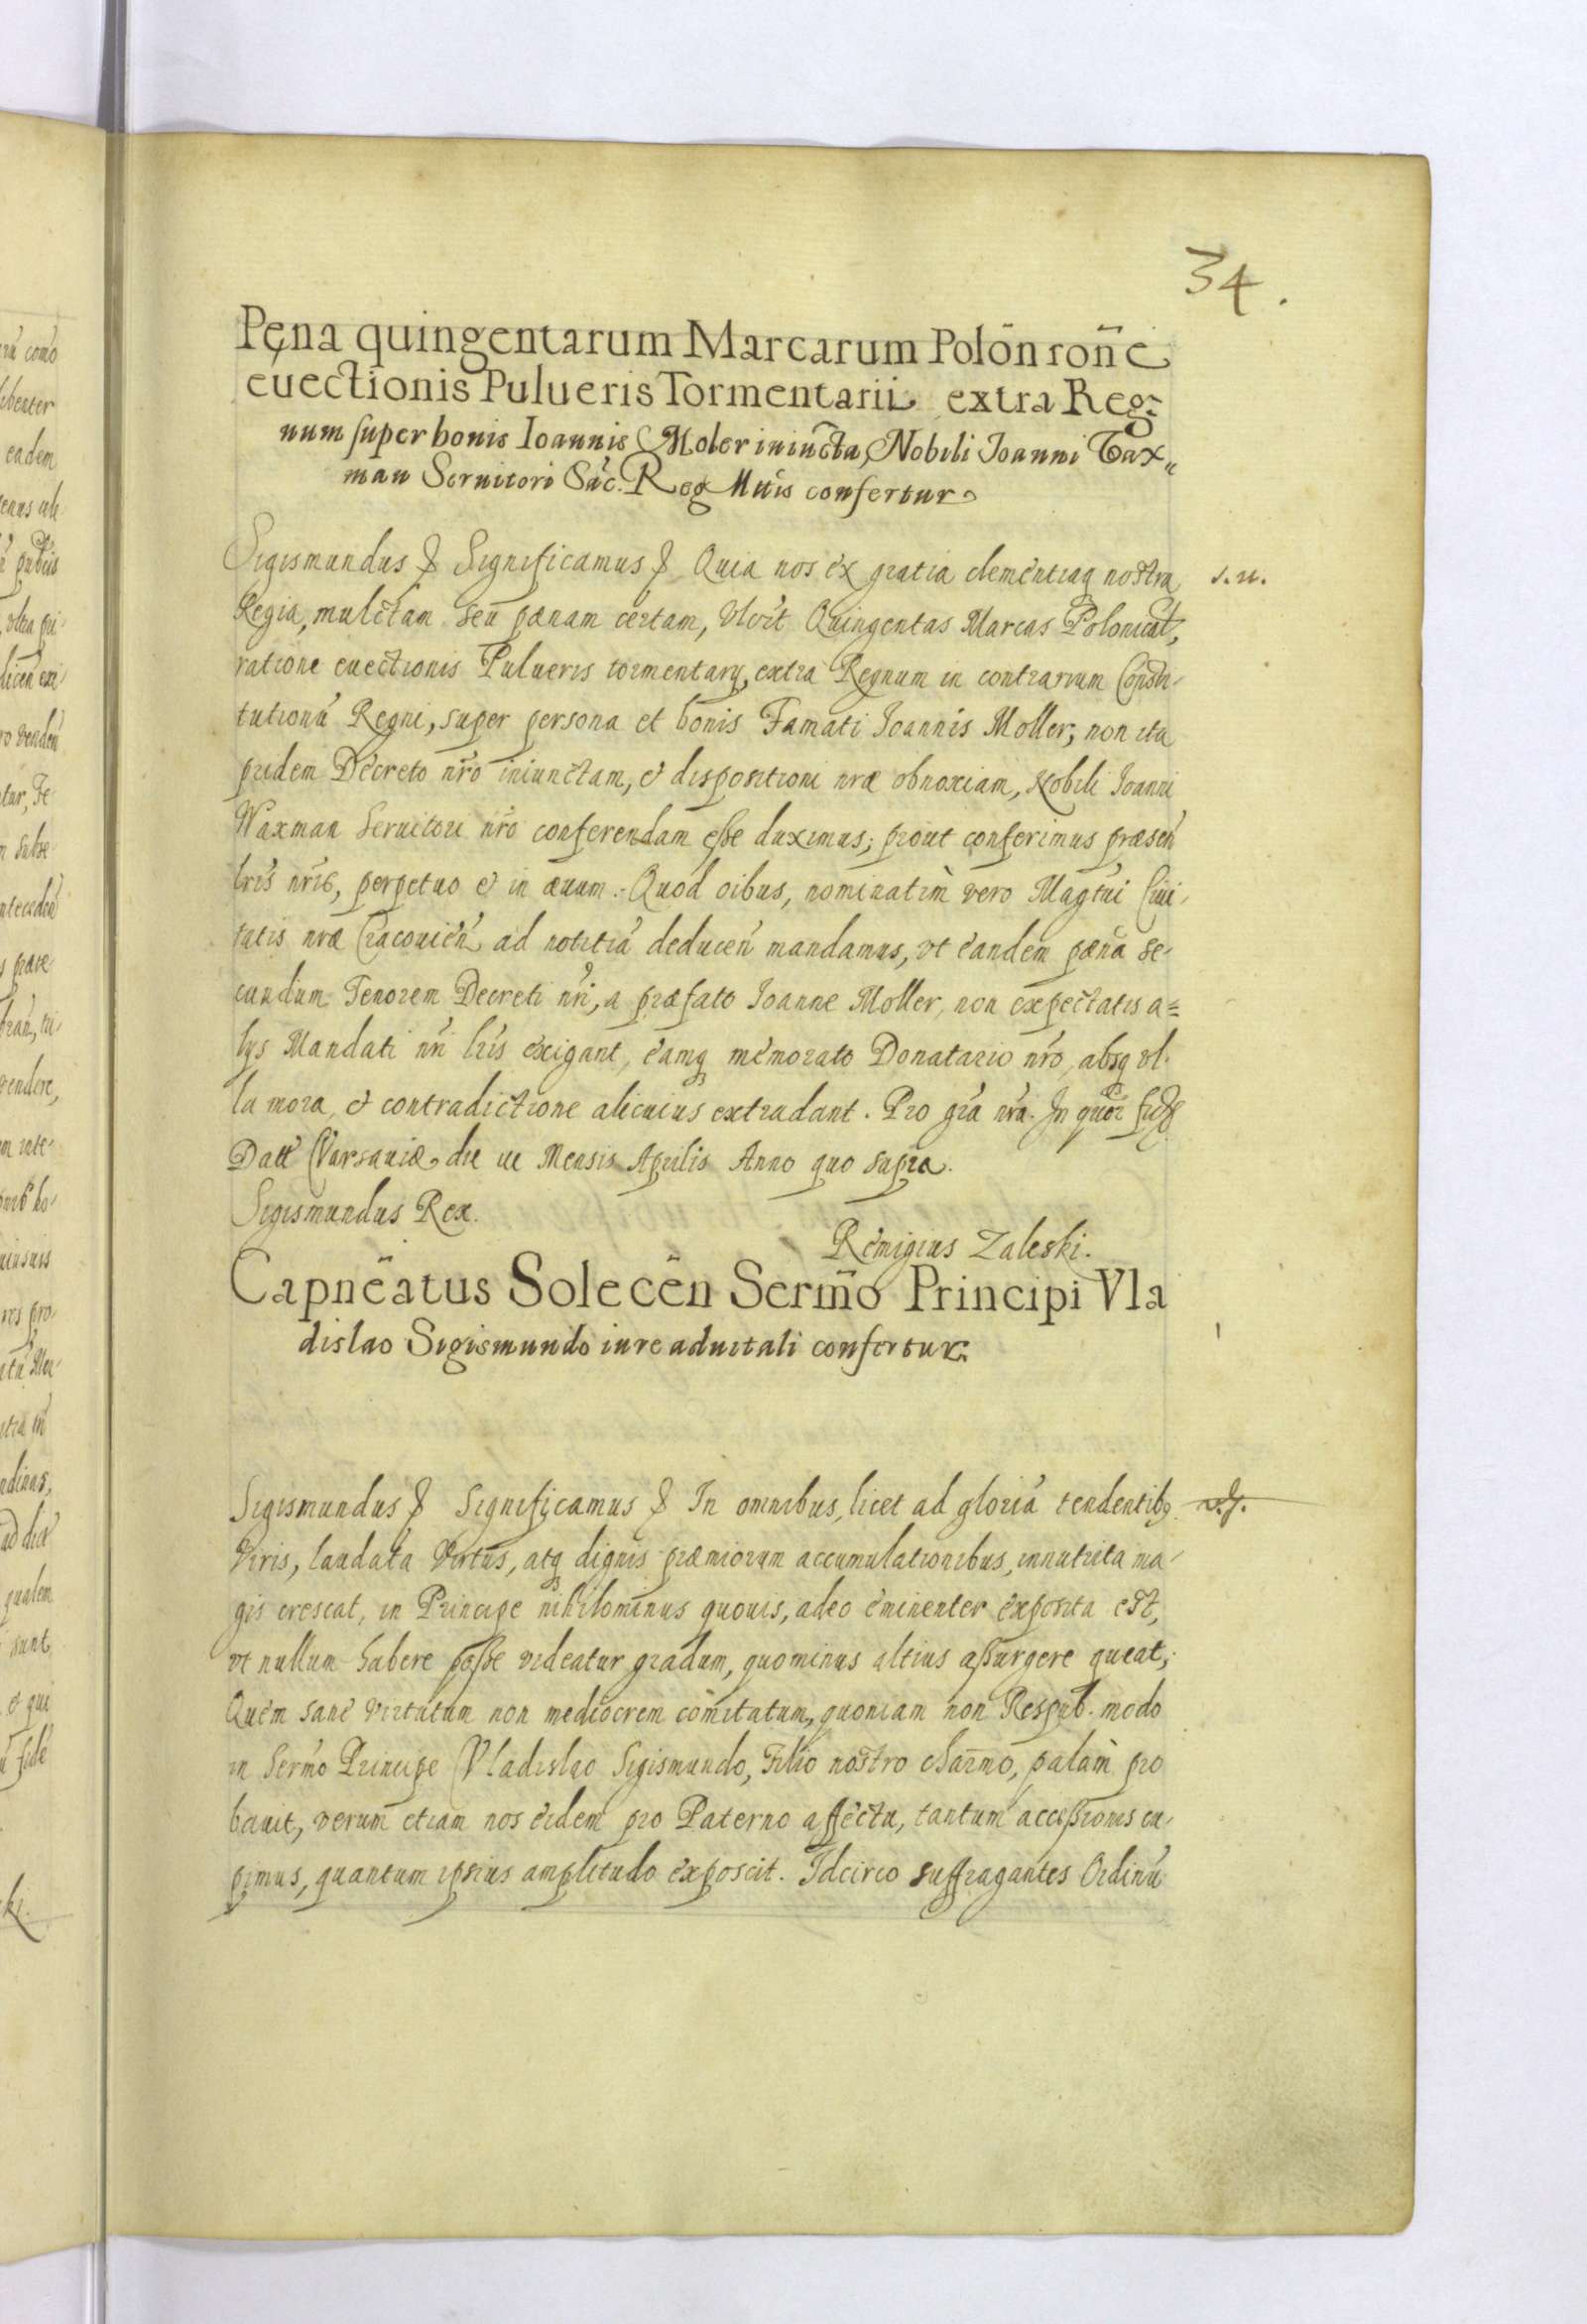 34.
Pęna quingentarum Marcarum Polon̄ ron̄e
euectionis Pulueris Tormentarii extra Reg-
num super bonis Ioannis Moler iniuncta, Nobili Ioanni Tax-
man Seruitori Sac. Reg Mttis confertur
Sigismundus & Significamus & Quia nos ex gratia clementiaq nostra s. u.
Regia, mulctam seu pænam certam, Vtōt Quingentas Marcas Polonical,
ratione euectionis Pulueris tormentary, extra Regnum in contrarium Consti-
tutionū Regni, super persona et bonis Famati Ioannis Moller, non ita
pridem Decreto nr̄o iniunctam, et dispositioni nr̄æ obnoxiam, Nobili Ioanni
Waxman Seruitori nr̄o conferendam esse duximus; prout conferimus præsen̄
lrīs nr̄is, perpetuo et in æuum. Quod oibus, nominatim vero Magtūi Ciui-
tatis nr̄æ Cracouien̄ ad notitiā deducen̄ mandamus, vt eandem pænā se-
cundum Tenorem Decreti nr̄i, a præfato Ioanne Moller, non expectatis a=
lys Mandati nr̄i lrīs exigant, eamq memorato Donatario nr̄o, absq vl-
la mora, et contradictione alicuius extradant. Pro grā nr̄a. In quor̄ fidē
Datt Varsauiæ die ue Mensis Aprilis Anno quo supra.
Sigismundus Rex.
Remigius Zaleski.
Capnēatus Solecēn Sermō Principi Vla
dislao Sigismundo iure aduitali confertur
Sigismundus & Significamus & In omnibus, licet ad gloriā tendentib9
Viris, laudata Virtus, atq dignis præmiorum accumulationibus, innutrita ma-
gis crescat, in Principe nihilominus quouis, adeo eminenter exposita est,
vt nullum habere posse videatur gradum, quominus altius assurgere queat,
Quem sane virtutum non mediocrem comitatum, quoniam non Respub. modo
in Sermō Principe Vladislao Sigismundo, Filio nostro charmō, palam pro
bauit, verum etiam nos eidem pro Paterno affectu, tantum accessionis cu-
pimus, quantum ipsius amplitudo exposcit. Idcirco suffragantes Ordinū